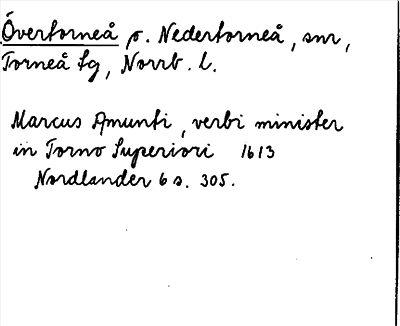 Övertorneå o. Nedertorneå, snr,
Torneå tg, Norrb. l.
Marcus Amunti, verbi minister
in Torno Superiori 1613
Nordlander 6 s. 305.